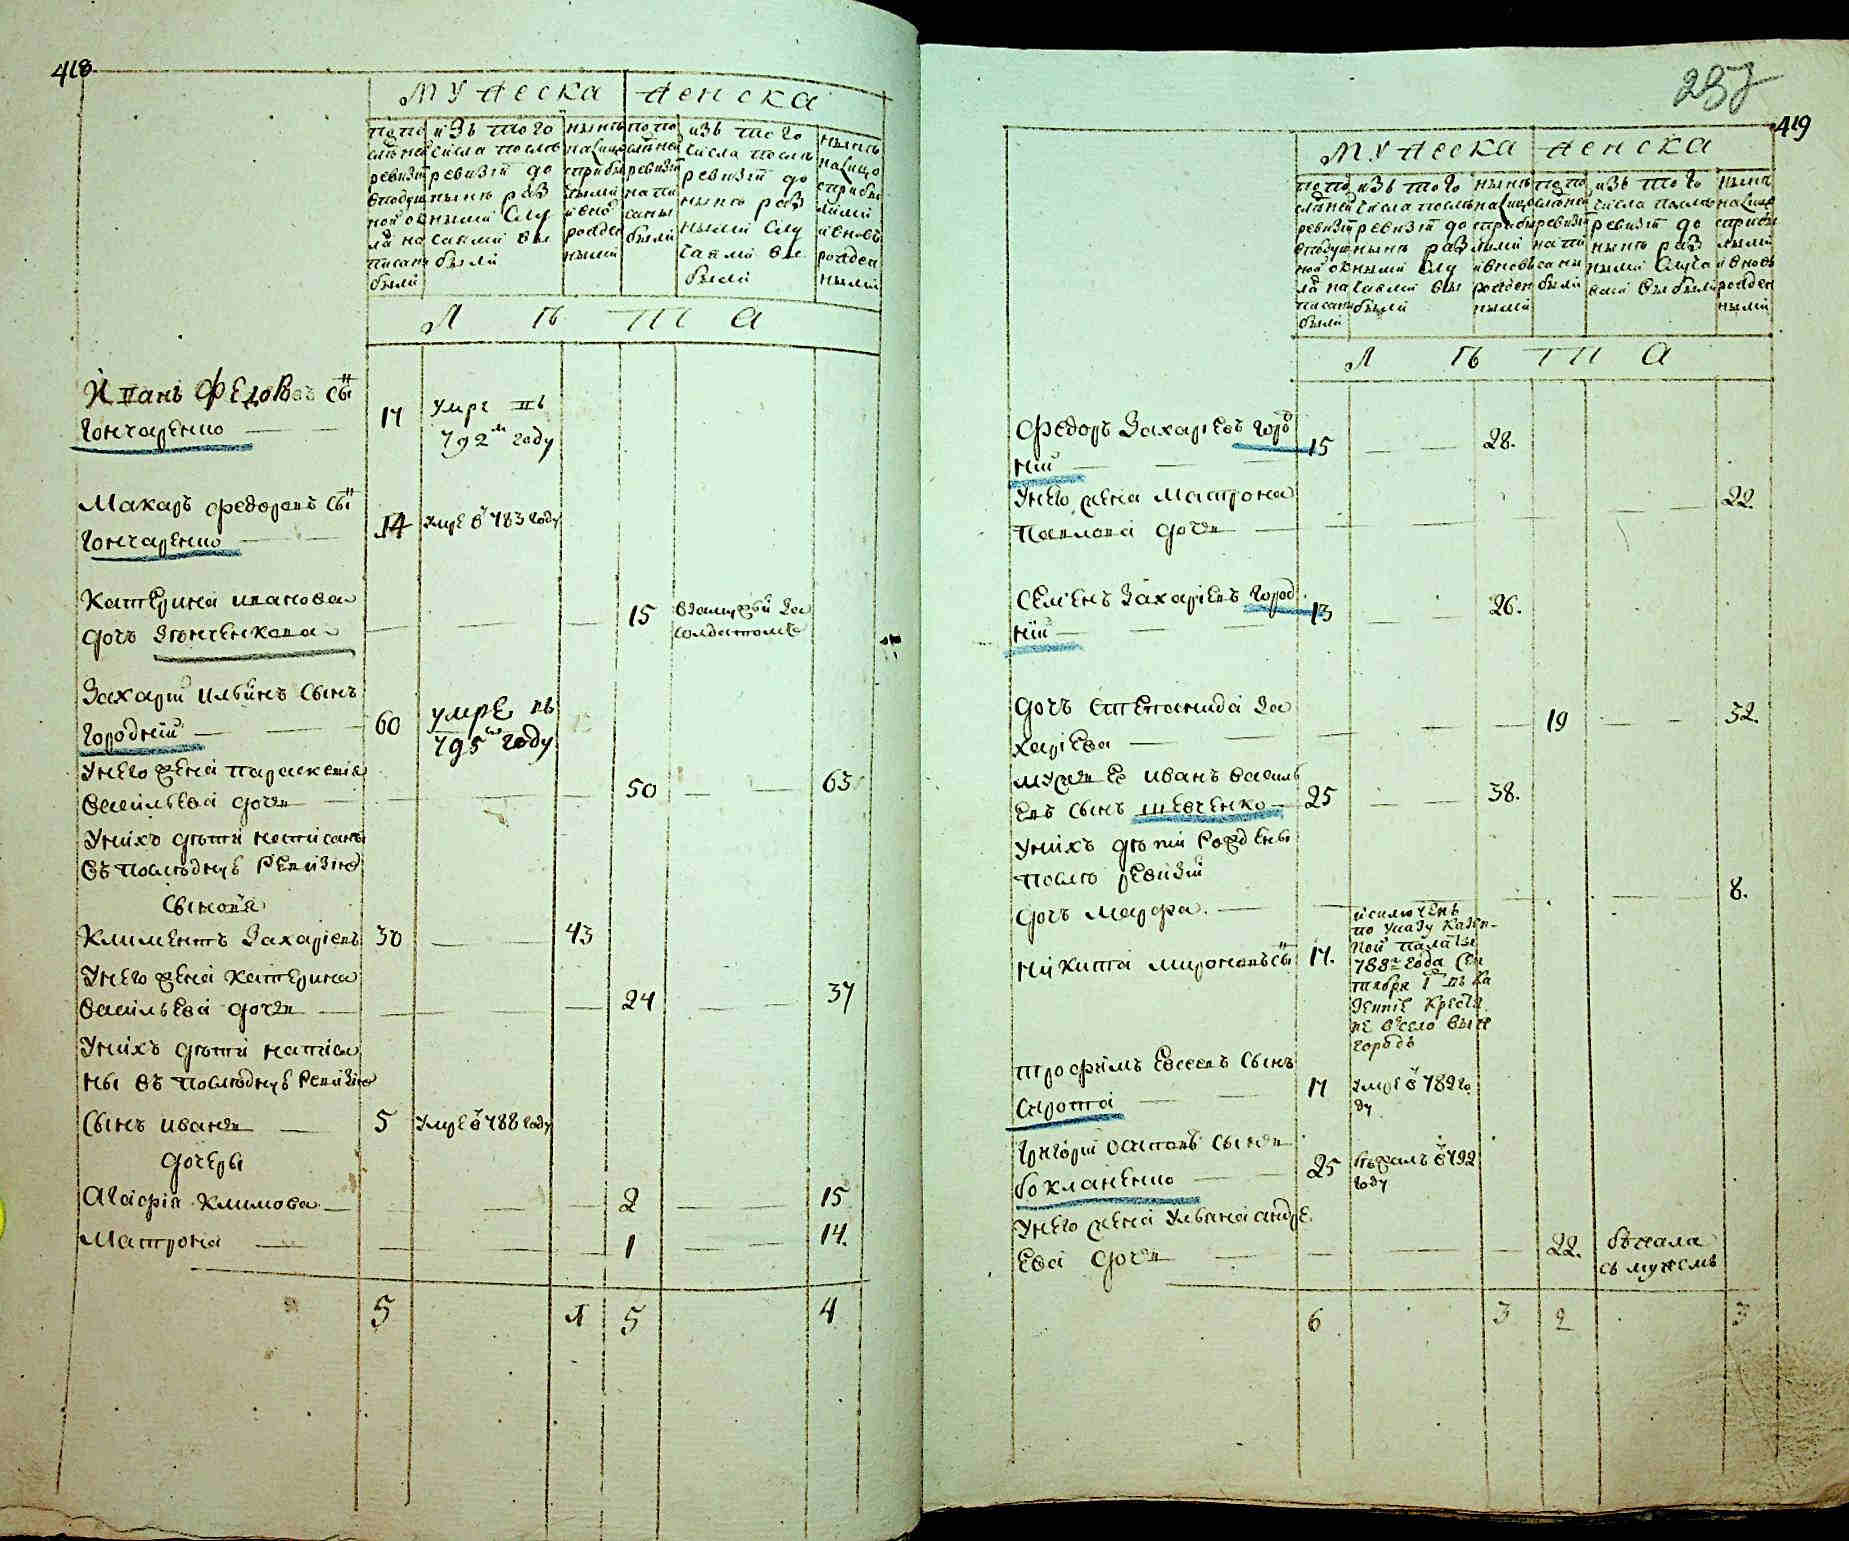 418
МУЖЕСКА ЖЕНСКА
по по
следней
ревизіи
в подуш
ной ок
ла на
писани
были
изъ того
числа после
ревизіи до
ныне раз
ными слу
чаями вы
были
ныне
на лицо
с прибы
лыми
и внов
рожден
ными
по по
следней
ревизіи
на пи
саны
были
изъ того
числа после
ревизіи до
ныне раз
ными слу
чаями вы
были
ныне
на лицо
с прибы
лыми
и вновь
рожден
ными
Л ѣ т а
Иванъ Федоровъ сынъ 17 умре въ
Гончаренко 792м году
Макаръ Федоровъ сынъ
Гончаренко 14 умре в 783 году
Катерина Иванова 15 в замужъи за
дочъ солдатомъ
Захарій Ильинъ сынъ
Городній 60 умре въ
795м году
У него жена Параскевія
Васильева дочь 50 63
У нихъ дѣти написаны
въ последную ревизію
сыновя
Климентъ Захаріевъ 30 43
У него жена Катерина
Васильева дочь 24 37
У нихъ дѣти написа
ны въ последную ревизію
Сынъ Иванъ 5 умре в 788 году
дочеры
Агафія Климова 2 15
Матрона 1 14.
5 1 5 4
257
419
МУЖЕСКА ЖЕНСКА
по по
следней
ревизіи
в подуш
ной ок
ла на
писани
были
изъ того
числа после
ревизіи до
ныне раз
ными слу
чаями вы
были
ныне
на лицо
с прибы
лыми
и вновь
рожден
ными
по по
следней
ревизіи
на пи
саны
были
изъ того
числа после
ревизіи до
ныне раз
ными случа
еми выбыли
ныне
на лице
с прибы
лыми
и вновь
рожден
ными
Л ѣ т а
Федоръ Захаріевъ Город
ній 15 28.
У него жена Матрона 22.
Павлова дочь
Семенъ Захаріевъ Город
ній 13 26.
Дочъ Степанида За 19 32.
харіева
Мужъ Ее Иванъ Василь
евъ сынъ Шевченко 25 38.
У нихъ дѣти рождены
после ревизіи
Дочъ Марфа. 8.
Никита Мироновъ сынъ 17. исключенъ
по указу казен
ной палаты
788г года сен
тября 1 въ ка
зенніе крестя
не в село Выше
городъ
Трофимъ Евсеевъ сынъ
Сирота 17 умре в 789 го
ду
Григорій Осиповъ сынъ
Бокланенко 25 бежалъ в 792
году
У него жена Уляна Андре
ева дочь 22. бежала
съ мужемъ
6 3 2 3